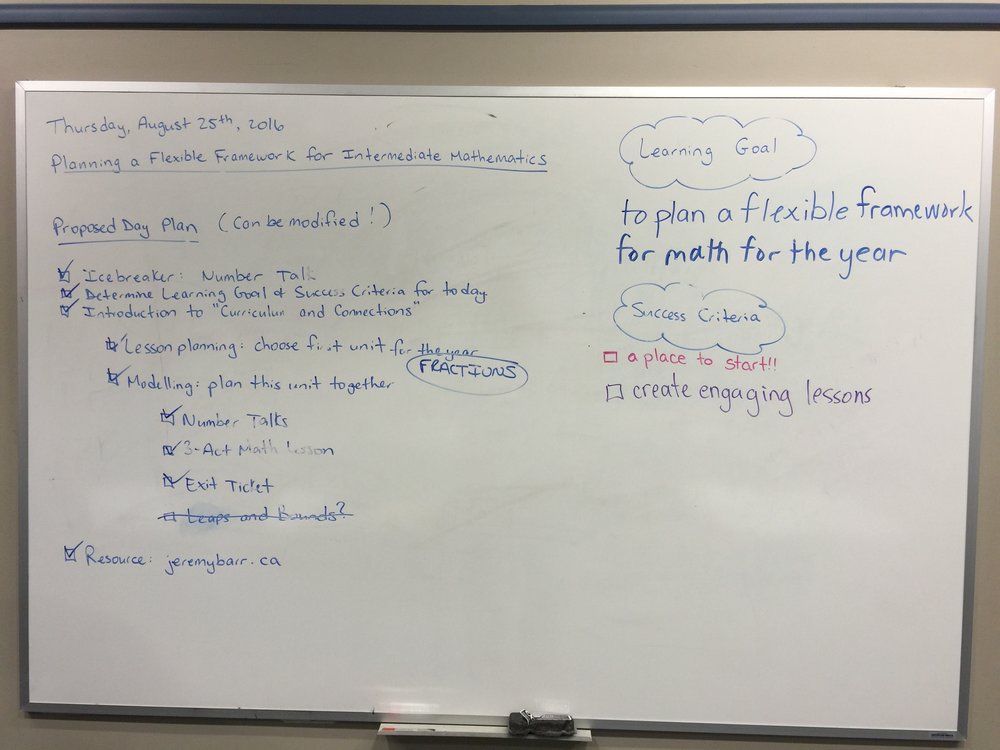 Thursday, August 25th, 2016
Planning a Flexible Framework for Intermediate Mathematics
Proposed Day Plan (Can be modified!)
Icebreaker: Number Talk
Determine Learning Goal & Success Criteria for today
Introduction to "Curriculum and Connections"
Lesson planning: choose first unit for the year
FRACTIONS
Modelling: plan this unit together
Number Talks
3-Act Math Lesson
Exit Ticket
Leaps and Bounds?
Resource: jeremybarr.ca
Learning Goal
to plan a flexible framework
for math for the year
Success Criteria
a place to start!!
create engaging lessons